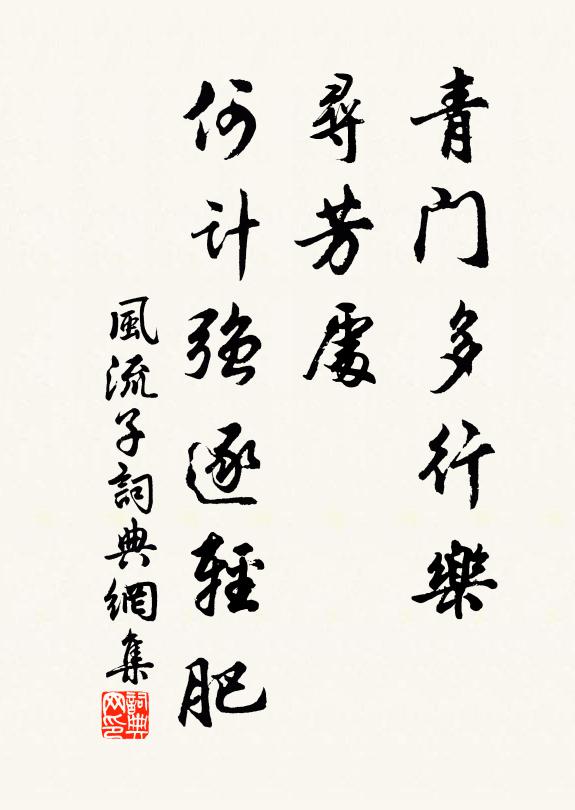 青门多行樂
尋芳處
何计強逐輕肥
風流子詞典網集
詞典网印